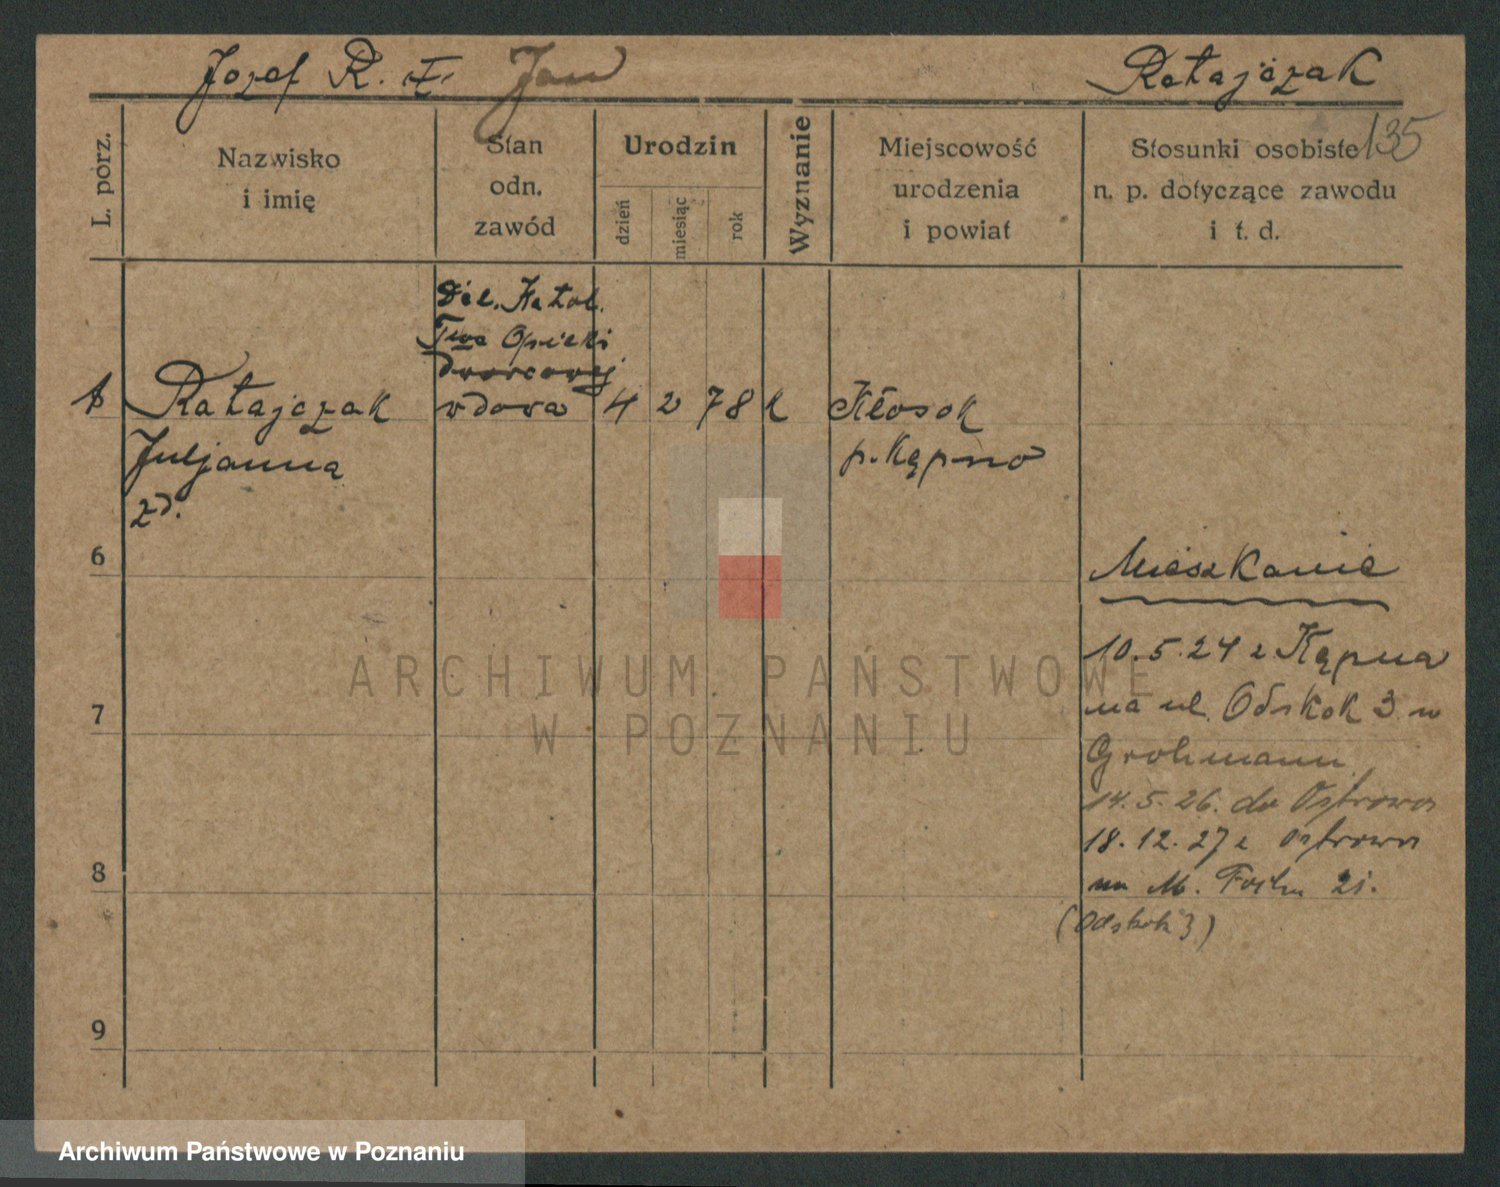 Jozef R. I. Jan Ratajczak
135
L. porz.
Nazwisko
i imię
Stan
odn.
zawód
Urodzin
dzień
miesiąc
rok
Wyznanie
Miejscowość
urodzenia
i powiat
Stosunki osobiste
n. p. dotyczące zawodu
i t. d.
Katol.
Twa Opieki
Dworcowej
Ratajczak wdowa 4 2 78 k Kłosok
Juljanna p. Kępno
zd.
6
7
8
9
Mieszkanie
10.5.24 z Kępna
na ul. Odskok 3 w
Grohmann
14.5.26. do Ostrowa
18.12.27 z Ostrowa
na M. Focha 21.
(Odskok 3)
ARCHIWUM PAŃSTWOWE
W POZNANIU
Archiwum Państwowe w Poznaniu